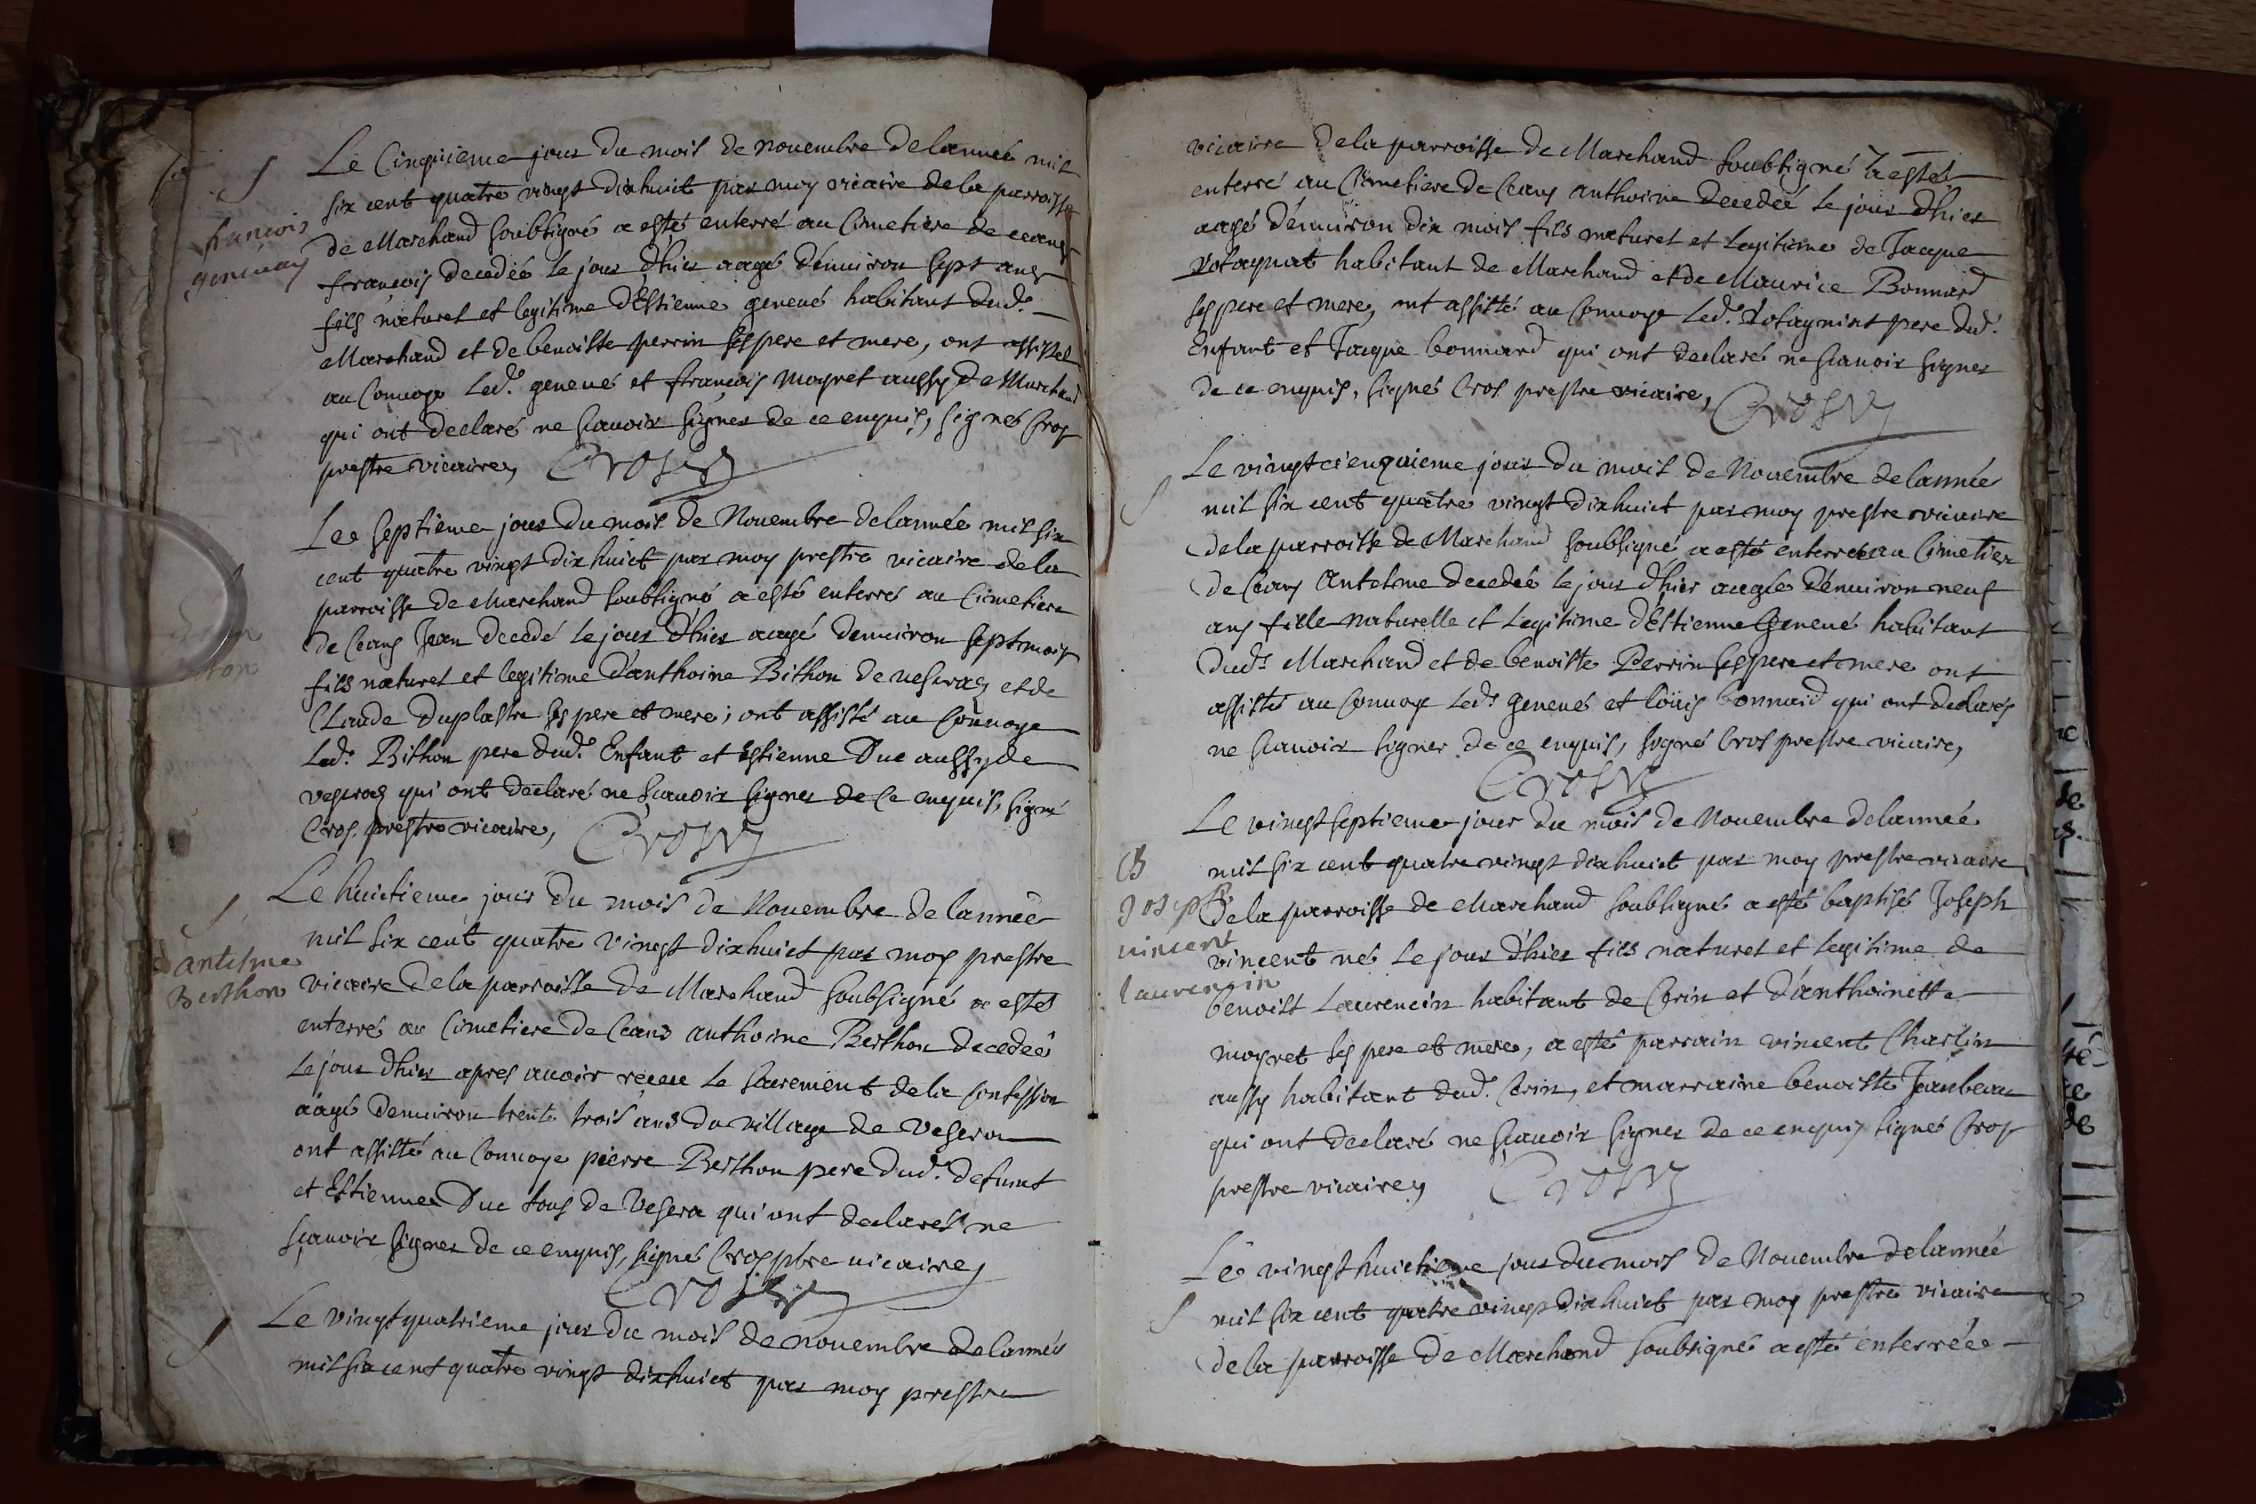 S
françois
geneuay
Le Cinquieme jour du mois de nouembre de lanneé mil
six cent quatre vingt dixhuict par moy vicaire de la parroisse
de Marchand soubsigné a esté enterré au Cimetiere de ceans
françois decedéé le jour d'hier aagé d'enuiron sept ans
fils naturel et legitime d'Estienne geneué habitant dud.
Marchand et de benoiste perrin ses pere et mere, ont assistel
au Conuoye led. geneué et françois Moyret aussy de Marchand
qui ont declaré ne scauoir signer de ce enquis, signé Cros
prestre vicaire, Cros V
Lee septieme jour du mois de Nouembre delannéé mil six
cent quatre vingt dix huict par moy prestre vicaire de la
parroisse de Marchand soubsigné a esté enterré au Cimetiere
de Ceans Jean decedé le jour d'hier aagé denuiron sept mois
fils naturel et legitime d'anthoine Bithon de et de
CLaude duplastre ses pere et mere; ont assisté au Conuoye
led. Bithon pere dud. Enfant et Estienne Duc aussy de
qui ont declaré ne scauoir signer de Ce enquis, signé
Cros prestre vicaire, Cros V
S
antelme
Berthon
Le huictieme jour du mois de Nouembre de lanneé
mil six cent quatre vingt dixhuict par moy prestre
vicaire de la parroisse de Marchand soubsigné a estéé
enterré au Cimetiere de Ceans anthoine Berthon decedéé
Le jour d'hier apres auoir receu le sacrement de la Confession
aagé denuiron trente trois ans du village de Vesera
ont assisté au Conuoye pierre Berthon pere dud. defunt
et Estienne Duc tous de Vesera qui ont declarés ne
scauoir signer de ce enquis, signé Cros ptre vicaire,
Cros V
S
Le vingt quatrieme jour du mois de nouembre de lanneé
mil six cent quatre vingt dixhuict par moy prestre
vicaire de la parroisse de Marchand soubsigné a estéé
enterré au Cimetiere de Ceans anthoine decedéé le jour d'hier
aagé d'enuiron dix mois fils naturel et Legitime de Jacque
habitant de Marchand et de Maurice Bonnard
ses pere et mere, ont assisté au Conuoye led. pere dud.
Enfant et Jacque bonnard qui ont declaré ne scauoir signer
de ce enquis, signé Cros prestre vicaire, Cros V
S
Le vingt cienquieme jour du mois de Nouembre de lannéé
mil six cent quatre vingt dixhuict par moy prestre vicaire
de la parroisse de Marchand soubsigné a esté enterré au Cimetier
de Ceans Antelme decedéé le jour d'hier aagéé d'enuiron neuf
ans fille naturelle et Legitime d'Estienne Geneué habitant
dud. Marchand et de benoiste Perrin ses pere et mere ont
assisté au Conuoye led. Geneué et loüis bonnard qui ont declarés
ne scauoir signer de ce enquis, signé Cros prestre vicaire,
Cros V
B
Joseph
vincent
laurensin
Le vingt septieme jour du mois de Nouembre de lanneé
mil six cent quatre vingt dixhuict par moy prestre vicaire
de la parroisse de Marchand soubsigné a esté baptisé Joseph
vincent né le jour d'hier fils naturel et legitime de
benoist Laurencin habitant de Cerin et d'anthoinette
moyret ses pere et mere, a esté parrain vincent Charlin
aussy habitant dud. Cerin, et marraine benoiste Jeanbeau
qui ont declaré ne scauoir signer de ce enquis signé Cros
prestre vicaire, Cros V
S
Le vingt huictieme jour du mois de Nouembre de lannéé
mil six cent quatre vingt dixhuict par moy prestre vicaire
de la parroisse de Marchand soubsigné a esté enterréé